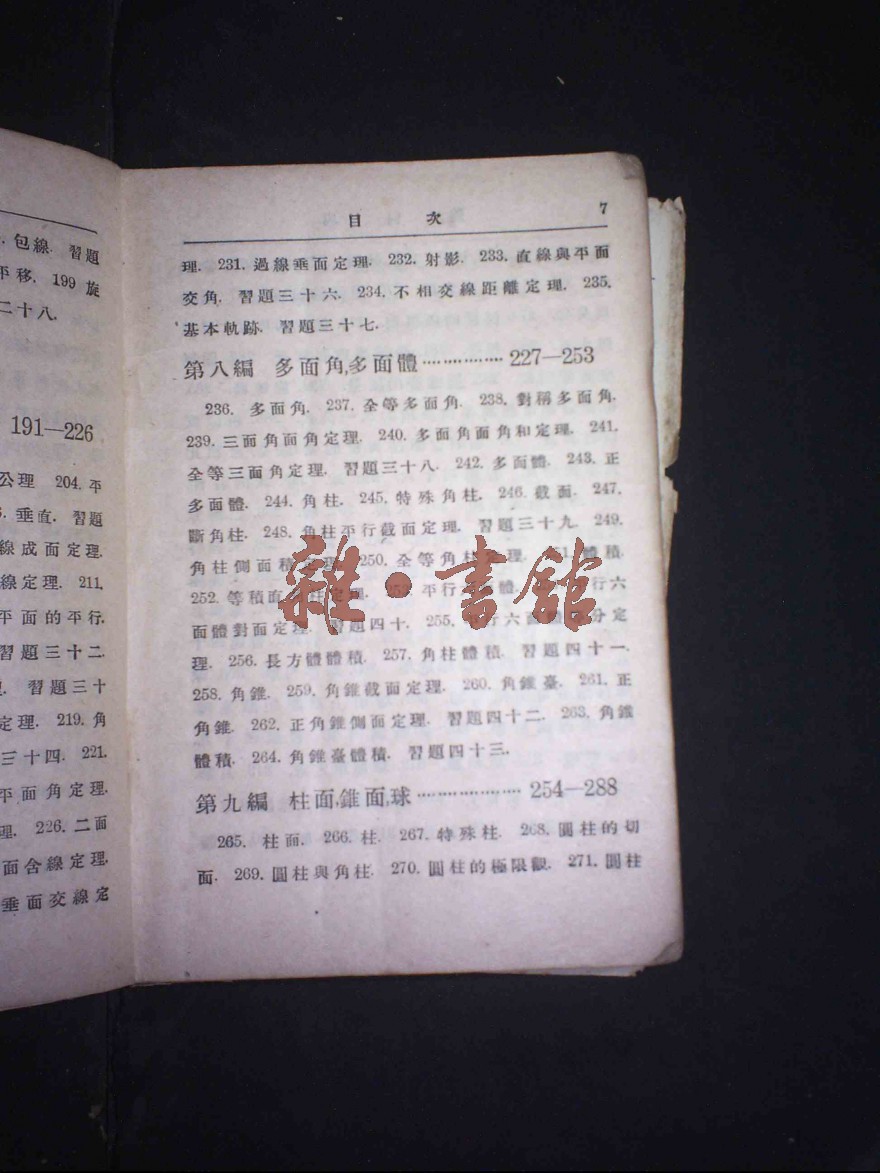 包線. 習題
平移. 199 旋
二十八.
191—226
公理 204. 平
垂直. 習題
線成面定理.
線定理. 211.
平面的平行.
習題三十二.
習題三十
定理. 219. 角
三十四. 221.
平面角定理.
理. 226. 二面
面含線定理.
垂面交線定
目 次 7
理. 231. 過線垂面定理. 232. 射影. 233. 直線與平面
交角. 習題三十六. 234. 不相交線距離定理. 235.
基本軌跡. 習題三十七.
第八編 多面角,多面體 ……………… 227—253
236. 多面角. 237. 全等多面角. 238. 對稱多面角.
239. 三面角面角定理. 240. 多面角面角和定理. 241.
全等三面角定理. 習題三十八. 242. 多面體. 243. 正
多面體. 244. 角柱. 245. 特殊角柱. 246. 截面. 247.
斷角柱. 248. 角柱平行截面定理. 習題三十九. 249.
角柱側面積定理. 250. 全等角柱定理. 251. 體積.
252. 等積直角柱定理. 253. 平行六面體. 平行六
面體對面定理. 習題四十. 255. 平行六面體分定
理. 256. 長方體體積. 257. 角柱體積. 習題四十一.
258. 角錐. 259. 角錐截面定理. 260. 角錐臺. 261. 正
角錐. 262. 正角錐側面定理. 習題四十二. 263. 角錐
體積. 264. 角錐臺體積. 習題四十三.
第九編 柱面,錐面,球 ………………… 254—288
265. 柱面. 266. 柱. 267. 特殊柱. 268. 圓柱的切
面. 269. 圓柱與角柱. 270. 圓柱的極限觀. 271. 圓柱
雜·書館